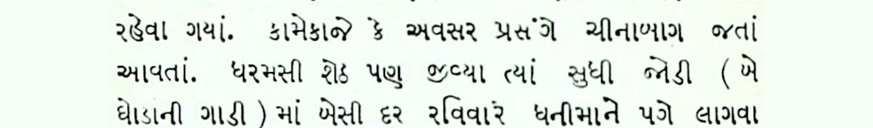 રહેવા ગયાં. કામેકાજે કે અવસર પ્રસંગે ચીનાબાગ જતાં
આવતાં. ધરમસી શેઠ પણ જીવ્યા ત્યાં સુધી જોડી ( બે
ઘોડાની ગાડી ) માં બેસી દર રવિવારે ધનીમાને પગે લાગવા